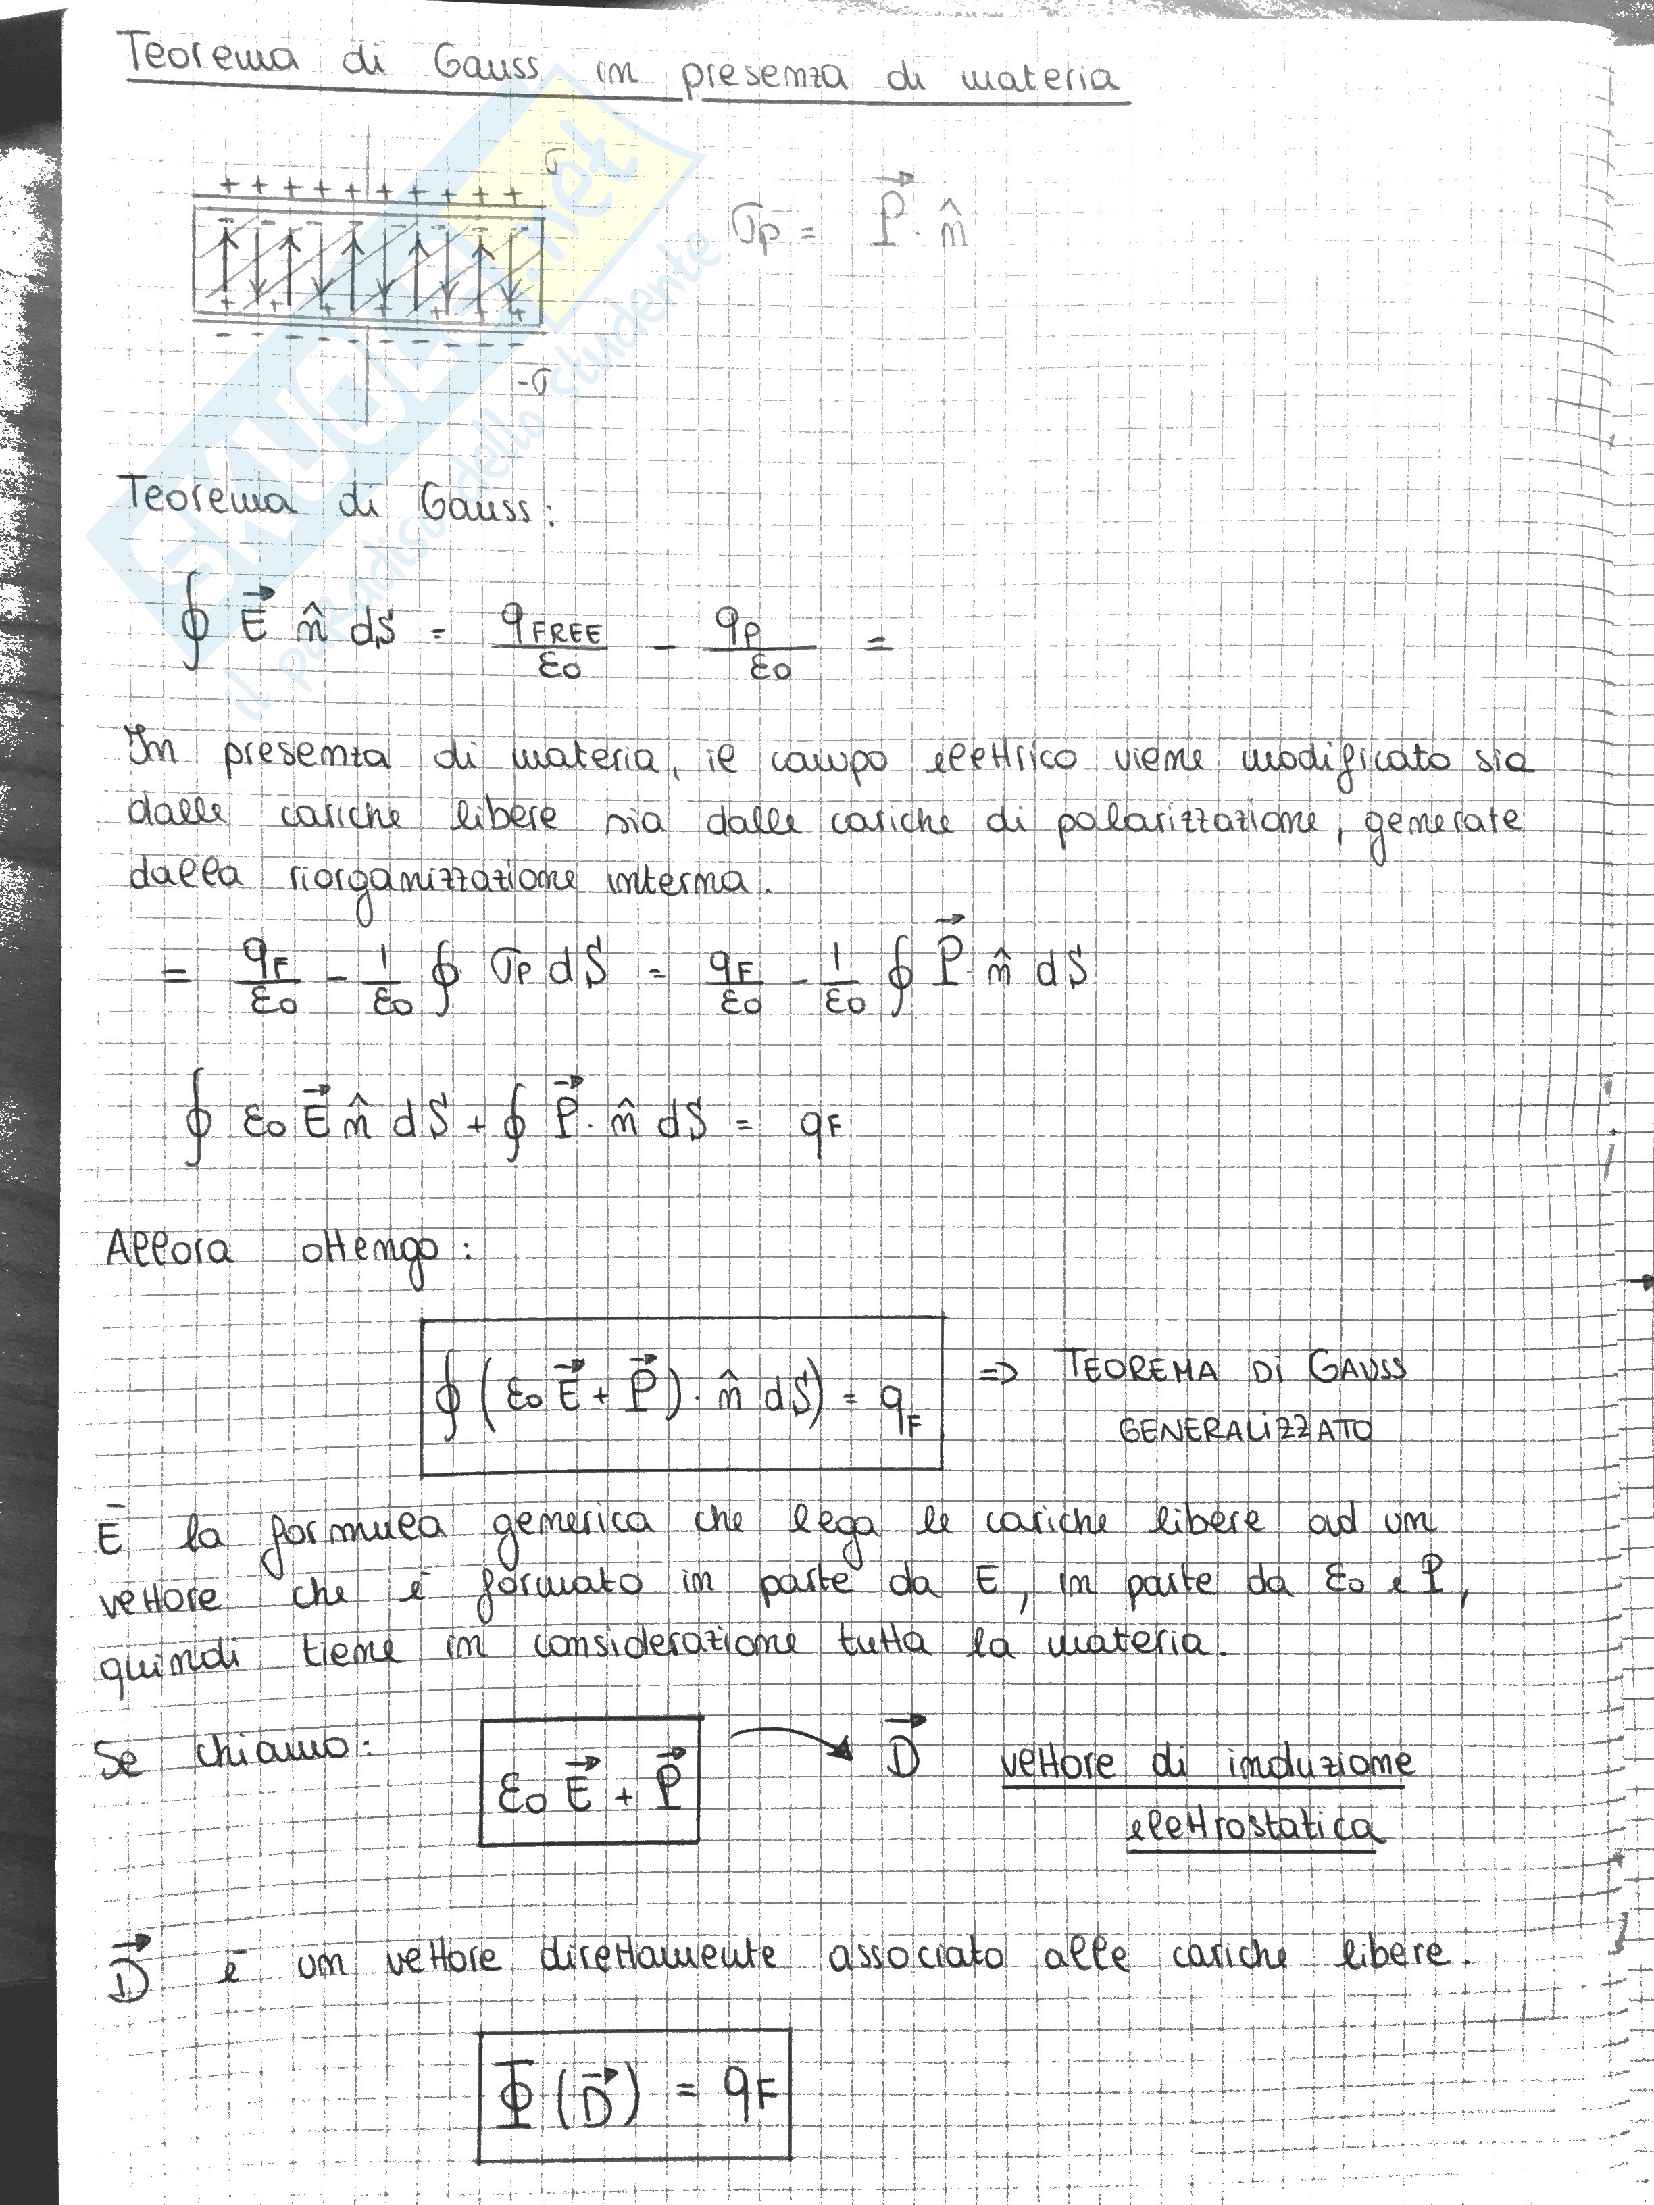 Teorema di Gauss in presenza di materia
σ
+ + + + + + + + + +
σp = P⃗ · n̂
- - - - - - - - - -
-σ
SKUOLA.net
il paradiso dello studente
Teorema di Gauss:
∮ E⃗ n̂ dS = qFREE/ε0 - qP/ε0 =
In presenza di materia, il campo elettrico viene modificato sia
dalle cariche libere sia dalle cariche di polarizzazione, generate
dalla riorganizzazione interna.
= qF/ε0 - 1/ε0 ∮ σP dS = qF/ε0 - 1/ε0 ∮ P⃗ · n̂ dS
∮ ε0 E⃗ n̂ dS + ∮ P⃗ · n̂ dS = qF
Allora ottengo:
∮ (ε0 E⃗ + P⃗) · n̂ dS) = qF => TEOREMA DI GAUSS
GENERALIZZATO
È la formula generica che lega le cariche libere ad un
vettore che è formato in parte da E, in parte da ε0 e P,
quindi tiene in considerazione tutta la materia.
Se chiamo: ε0 E⃗ + P⃗ → D⃗ vettore di induzione
elettrostatica
D⃗ è un vettore direttamente associato alle cariche libere.
Φ (D⃗) = qF